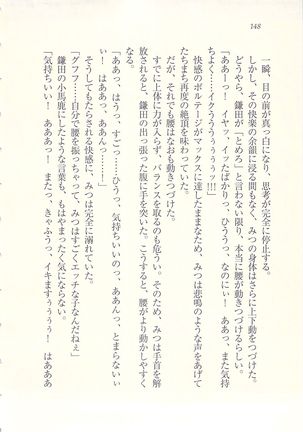 148
一瞬、目の前が真っ白になり、思考が完全に停止する。
しかし、その快楽の余韻に浸る間もなく、みつの身体はさらに上下動をつづけた。
どうやら、鎌田が「とめろ」と言わない限り、本当に腰が動きつづけるらしい。
「ああーっ! イヤッ、イッたばかり……ひううっ、なのにぃ! ああっ、また気持
ちよく……イクううううぅぅぅッ!!!」
快感のボルテージがマックスに達したままなため、みつは悲鳴のような声をあげて
たちまち再度の絶頂を味わっていた。
だが、それでも腰はなおも動きつづけた。
すでに上体に力が入らず、バランスを取るのも危うい。そのため、みつは手首を解
放されると、鎌田の出っ張った腹に手を突いた。こうすると、腰がより動かしやすく
なる。
「ああっ、はうっ、すごっ……ひうっ、気持ちいいのっ、ああんっ、とまらないぃ
ぃ! はああっ、ああんっ……!」
そうしてもたらされる快感に、みつは完全に溺れていた。
「グフフ……自分で腰を振っちゃって、みつはすごくエッチな子なんだねぇ」
鎌田の小馬鹿にしたような言葉も、もはやまったく気にならない。
「気持ちいい! あああっ! またっ、きゃふうっ、イキますぅぅぅぅ! はあああ